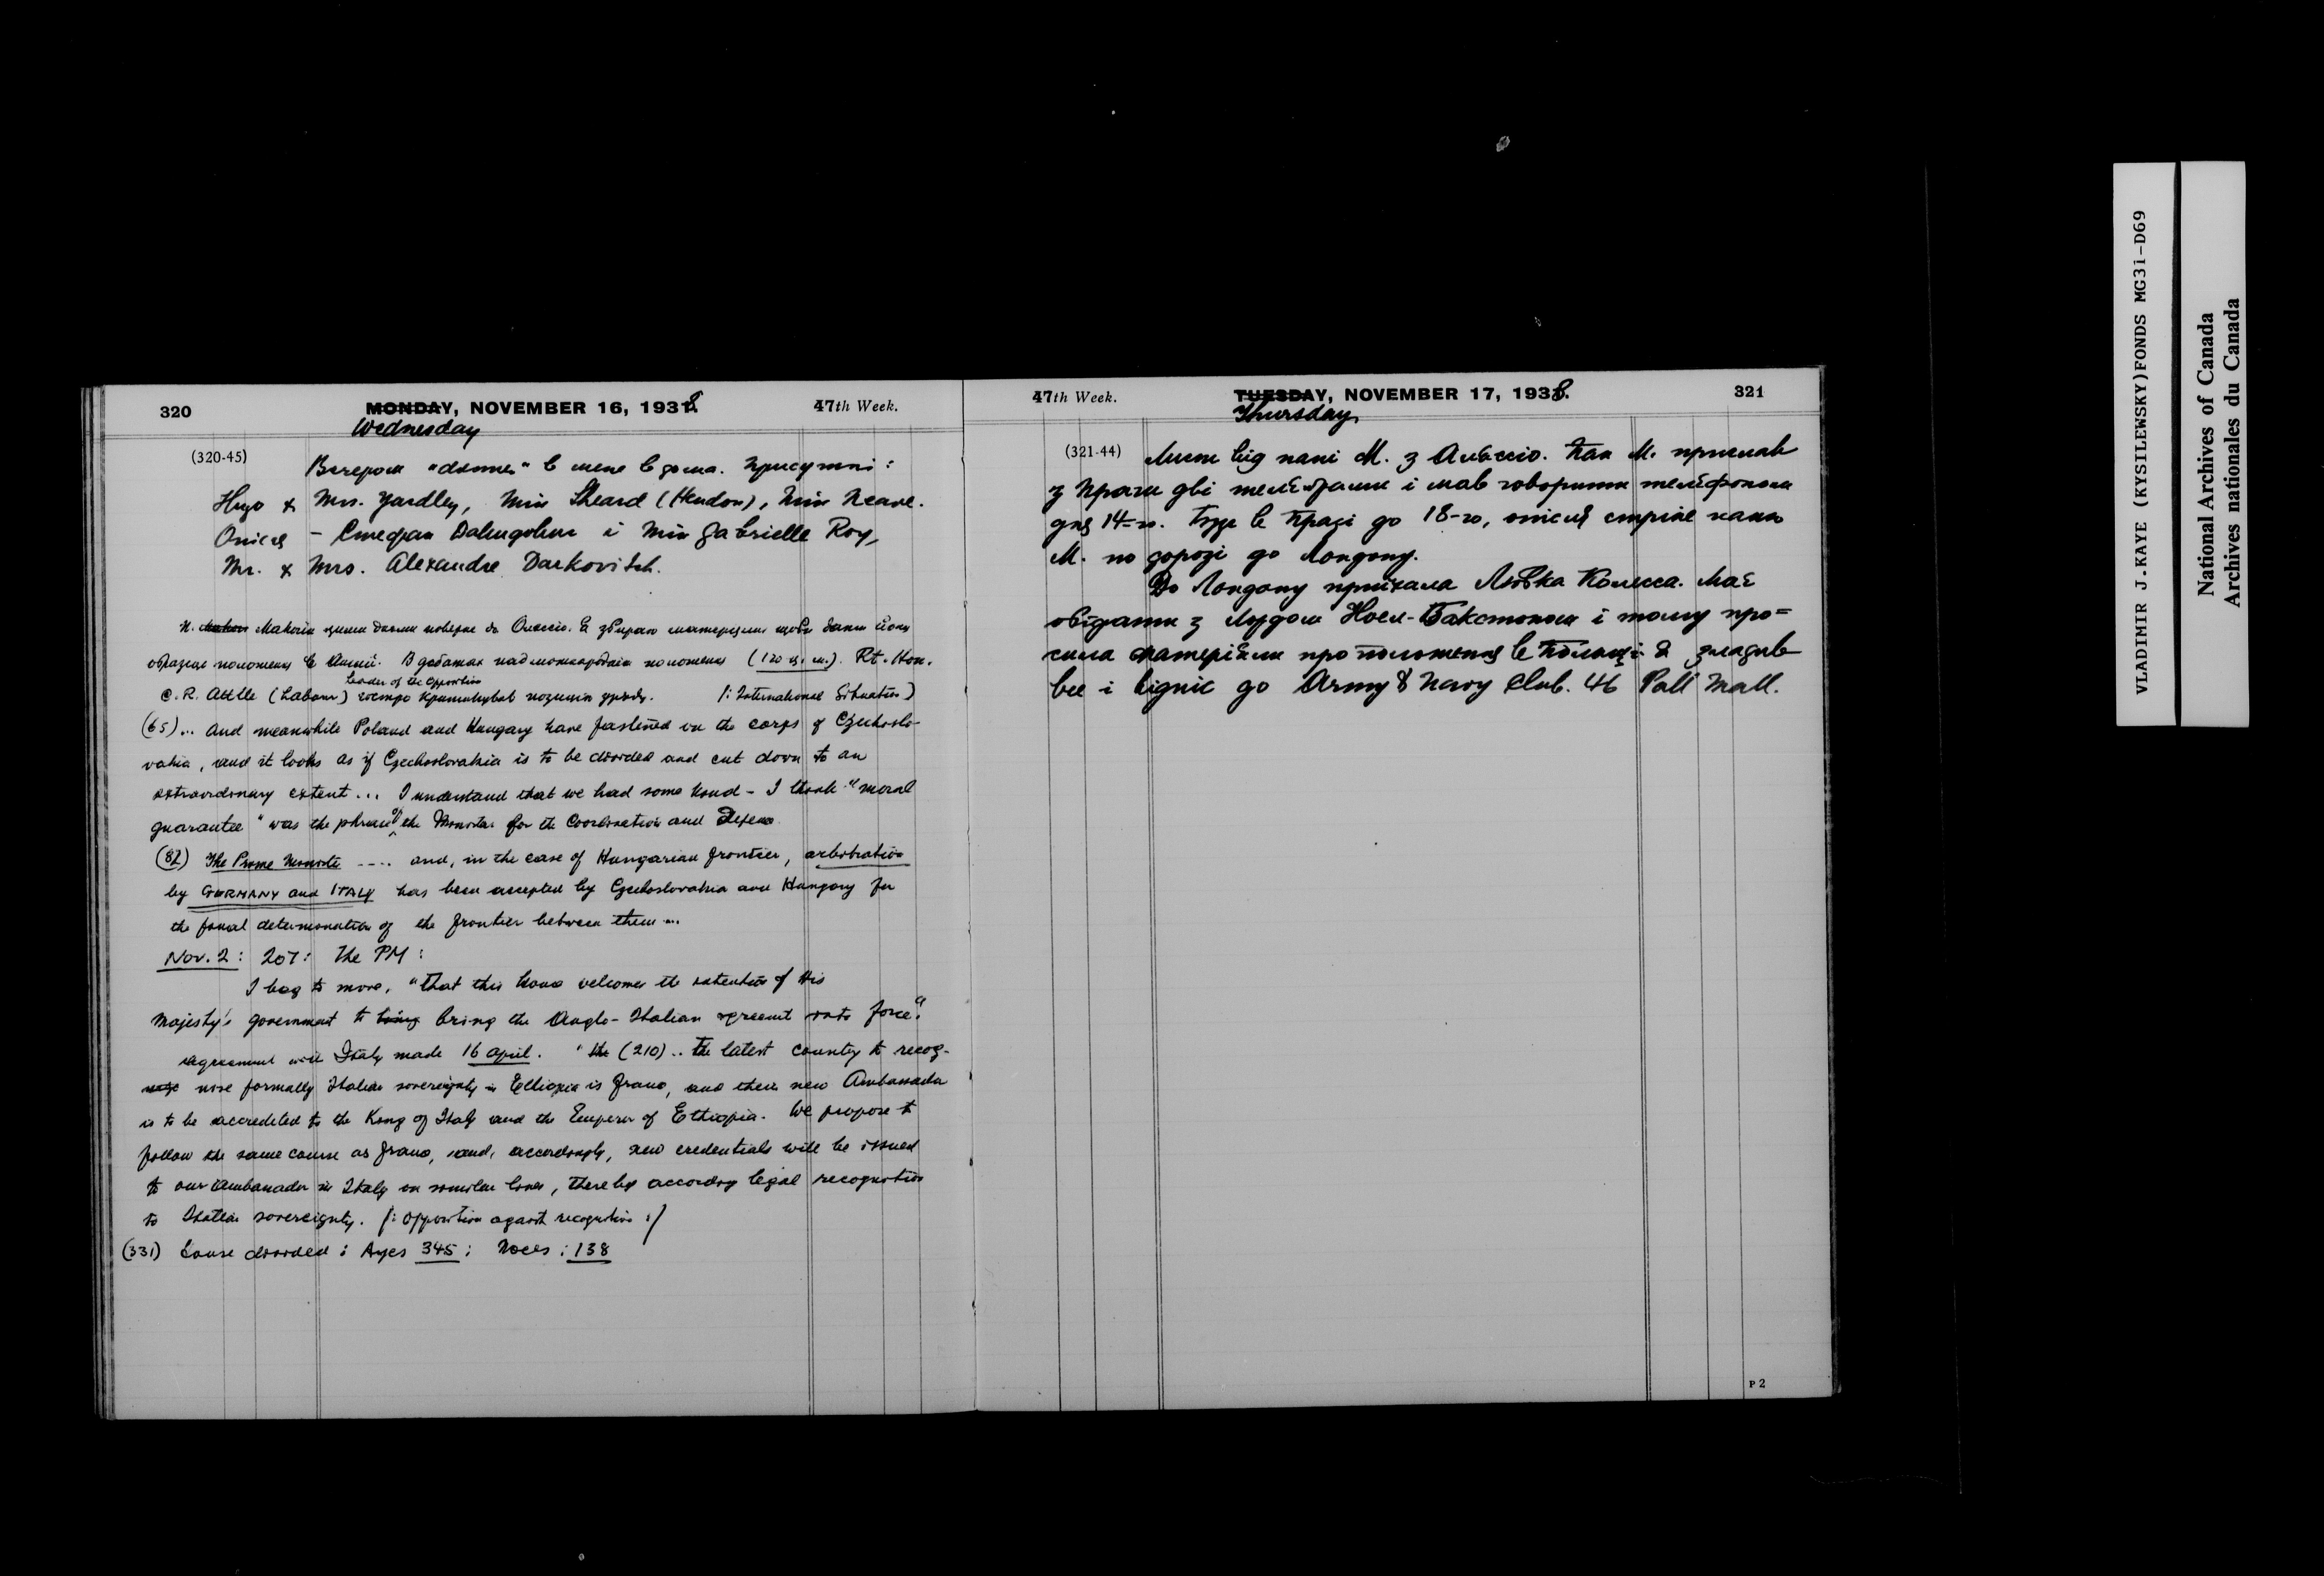 320
MONDAY, NOVEMBER 16, 1938.
47th Week.
Wednesday
(320-45)
Вечером "dinner" в мене вдома. Присутні:
Hugo & Mrs. Yardley, Miss Sheard (Hendon), Miss Neave.
Опісля – Стефан Давидович і Miss Gabrielle Roy,
Mr. & Mrs. Alexandre Darkovitch.
п. Makohin
образце положення в Англії. В дебатах над міжнародним положення (120 Rt. Hon.
Leader of the Opposition
C. R. Attlee (Labour) гостро критикував позицію уряду. /: International Situation)
(65)... And meanwhile Poland and Hungary have fastened on the corps of Czechoslo-
vakia, and it looks as if Czechoslovakia is to be divided and cut down to an
extraordinary extent... I understand that we had some kind – I think "moral
guarantee" was the phrase of the Minister for the Coordination and Defence
(82) The Prime Minister .... and, in the case of Hungarian frontier, arbitration
by GERMANY and ITALY has been accepted by Czechoslovakia and Hungary for
the final determination of the frontier between them...
Nov. 2: 207: The PM:
I beg to move, "that this House welcomes the intention of His
Majesty's Government to bring the Anglo-Italian agreement into force."
agreement with Italy made 16 April. "the (210).. The latest country to recog-
nise formally Italian sovereignty in Ethiopia is France, and their new Ambassador
is to be accredited to the King of Italy and the Emperor of Ethiopia. We propose to
follow the same course as France, and, accordingly, new credentials will be issued
to our Ambassador in Italy on similar lines, thereby according legal recognition
to Italian sovereignty. /: Opposition against recognition :/
(331) House divided: Ayes 345; Noes: 138
47th Week.
TUESDAY, NOVEMBER 17, 1938.
321
Thursday
(321-44)
Лист від пані М. з Алассіо. Пан М. прислав
з Праги дві телєграми і мав говорити телєфоном
дня 14-го. Буде в Празі до 18-го, опісля стріне паню
М. по дорозі до Лондону.
До Лондону приїхала Любка Колесса. Має
обідати з Лордом Ноел-Бакстоном і тому про=
сила матеріяли про положення в Польщі. Я зладив
все і відніс до Army & Navy Club. 46 Pall Mall.
P 2
VLADIMIR J.KAYE (KYSILEWSKY)FONDS MG31-D69
National Archives of Canada
Archives nationales du Canada